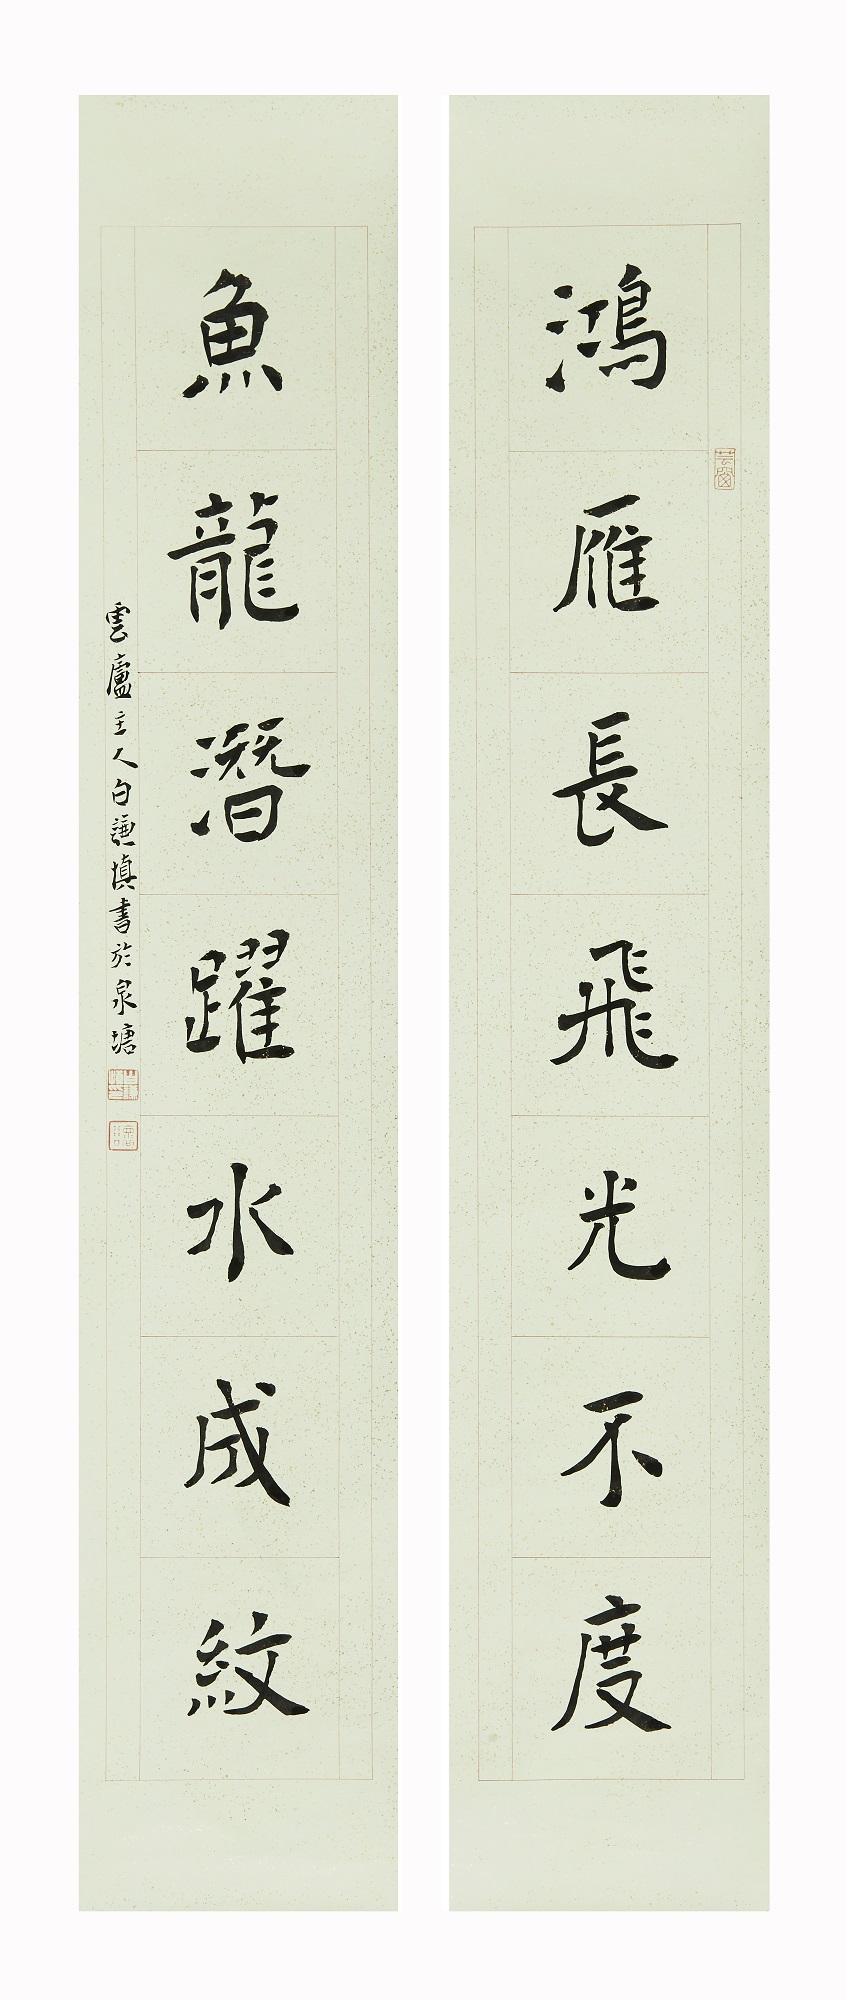 鴻雁長飛光不度
魚龍潛躍水成紋
雲廬主人白謙慎書於泉塘
芸窗